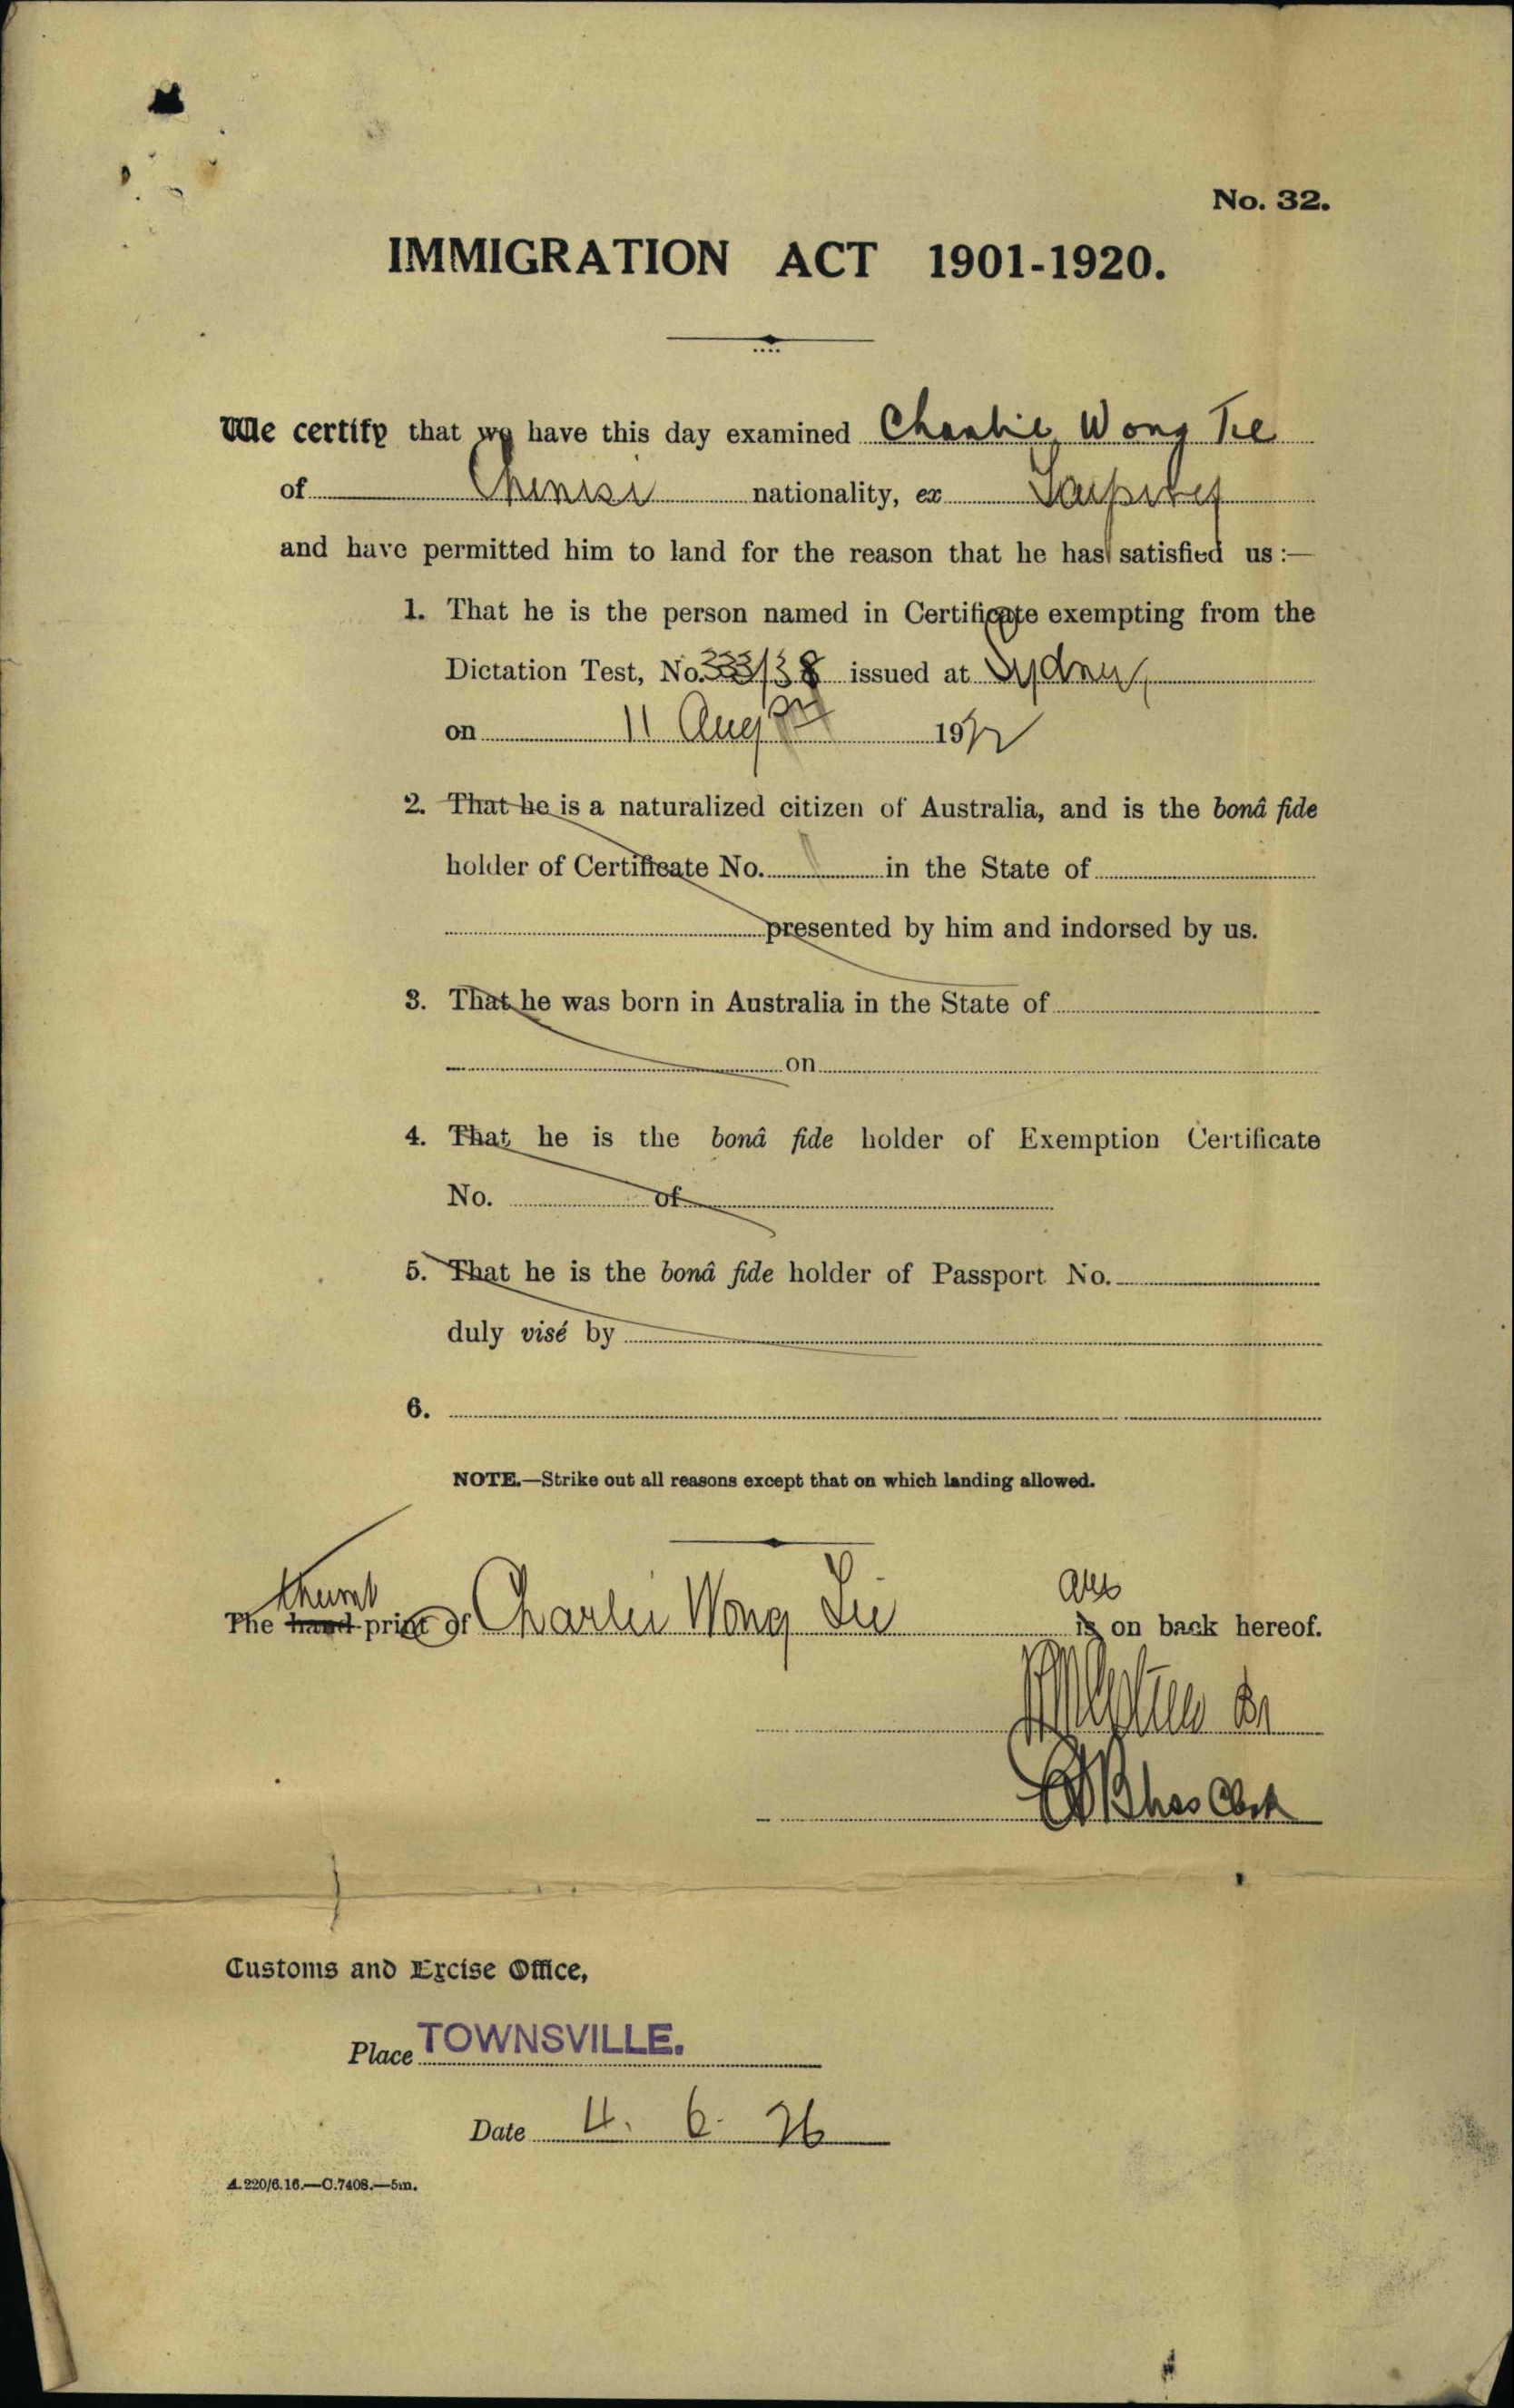 No. 32.
IMMIGRATION ACT 1901-1920.
We certify that we have this day examined Charlie Wong Tie
of Chinese nationality, ex Taiping
and have permitted him to land for the reason that he has satisfied us :—
1. That he is the person named in Certificate exempting from the
Dictation Test, No. 333/38 issued at Sydney
on 11 Aug 19
2. That he is a naturalized citizen of Australia, and is the bonâ fide
holder of Certificate No. in the State of
presented by him and indorsed by us.
3. That he was born in Australia in the State of
on
4. That he is the bonâ fide holder of Exemption Certificate
No. of
5. That he is the bonâ fide holder of Passport No.
duly visé by
6.
NOTE.—Strike out all reasons except that on which landing allowed.
thumb are
The hand print of Charlie Wong is on back hereof.
Clerk
Customs and Excise Office,
Place TOWNSVILLE.
Date 4. 6. 26
A.220/6.16.—C.7408.—5m.